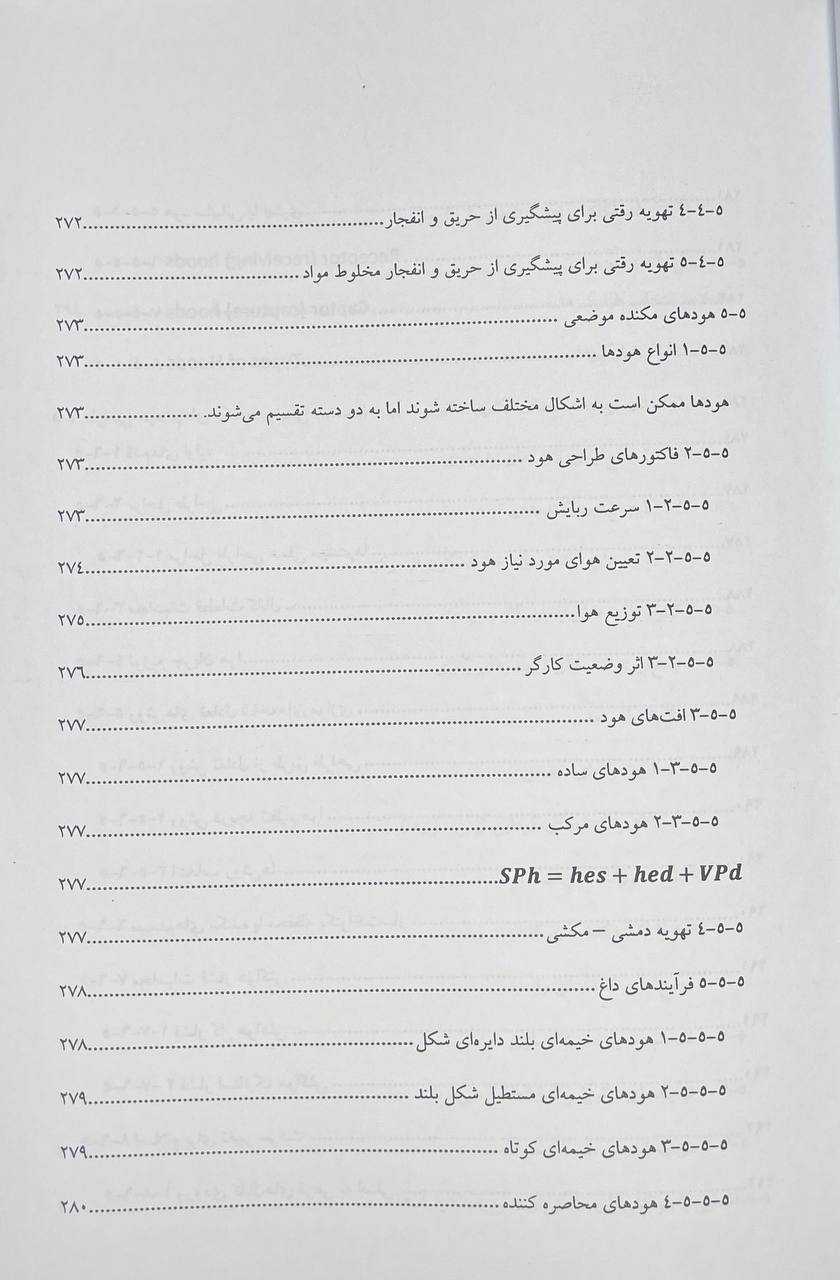 ٥-٤-٤ تهویه رقتی برای پیشگیری از حریق و انفجار................................................۲۷۲
٥-٤-٥ تهویه رقتی برای پیشگیری از حریق و انفجار مخلوط مواد ................................۲۷۲
٥-٥ هودهای مکنده موضعی ................................................................................۲۷۳
٥-٥-۱ انواع هودها ..............................................................................................۲۷۳
هودها ممکن است به اشکال مختلف ساخته شوند اما به دو دسته تقسیم می‌شوند. ...................۲۷۳
٥-٥-۲ فاکتورهای طراحی هود ...........................................................................۲۷۳
٥-٥-۲-۱ سرعت ربایش ....................................................................................۲۷۳
٥-٥-۲-۲ تعیین هوای مورد نیاز هود ..................................................................۲۷٤
٥-٥-۲-۳ توزیع هوا..........................................................................................۲۷٥
٥-٥-۲-۳ اثر وضعیت کارگر ..............................................................................۲۷٦
٥-٥-۳ افت‌های هود ..........................................................................................۲۷۷
٥-٥-۳-۱ هودهای ساده ....................................................................................۲۷۷
٥-٥-۳-۲ هودهای مرکب ...................................................................................۲۷۷
SPh = hes + hed + VPd................................................................۲۷۷
٥-٥-٤ تهویه دمشی – مکشی..............................................................................۲۷۷
٥-٥-٥ فرآیندهای داغ........................................................................................۲۷۸
٥-٥-٥-۱ هودهای خیمه‌ای بلند دایره‌ای شکل.....................................................۲۷۸
٥-٥-٥-۲ هودهای خیمه‌ای مستطیل شکل بلند ....................................................۲۷۹
٥-٥-٥-۳ هودهای خیمه‌ای کوتاه .......................................................................۲۷۹
٥-٥-٥-٤ هودهای محاصره کننده ......................................................................۲۸۰